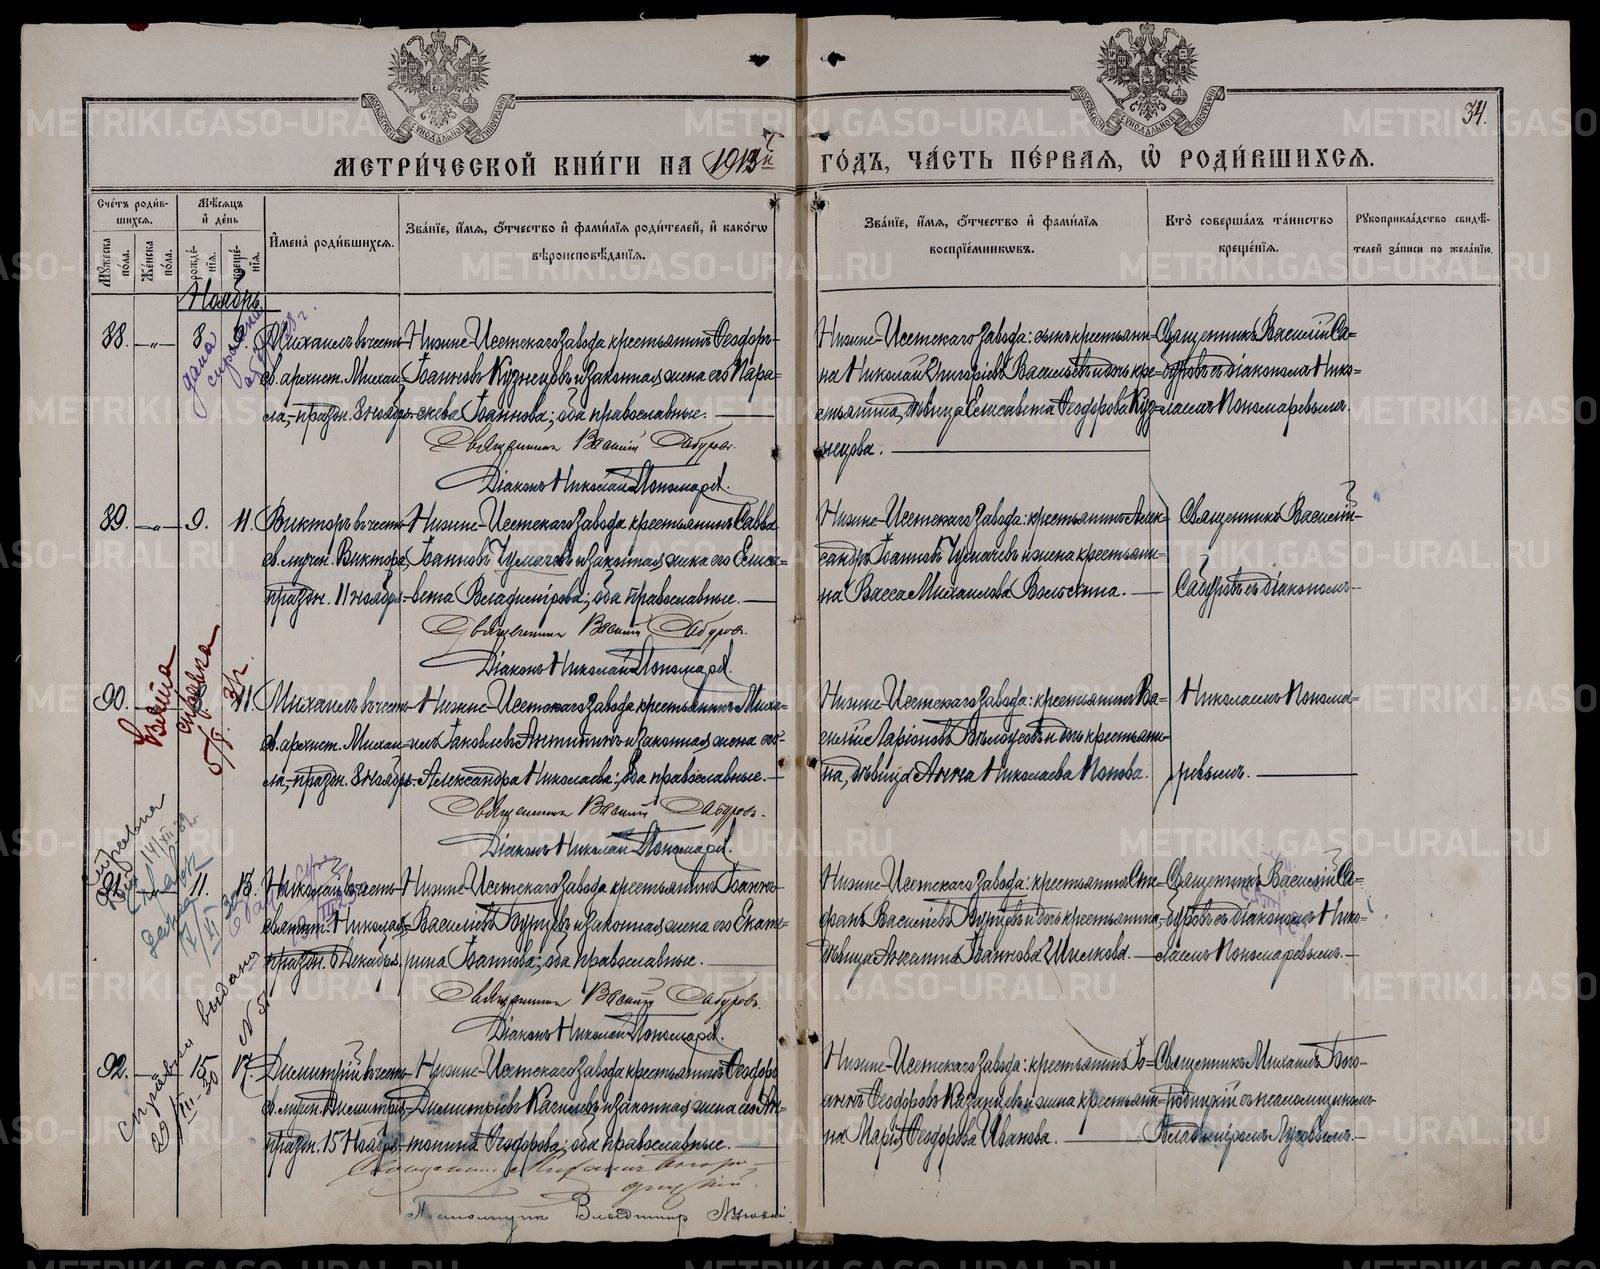 34.
МЕТРИ́ЧЕСКОЙ КНИ́ГИ НА 1913й ГО́ДЪ, ЧА́СТЬ ПЕ́РВАЯ, Ѡ҆ РОДИ́ВШИХСЯ.
Сче́тъ роди́в-
шихся.
Мꙋ́жеска по́ла.
Же́нска по́ла.
Мѣ́сяцъ
и҆ де́нь
рожде́-
нїя.
креще́-
нїя.
И҆мена̀ роди́вшихся.
Зва́нїе, и҆́мя, ѻ҆́тчество и҆ фами́лїя роди́телей, и҆ како́гѡ
вѣроисповѣ́данїя.
Зва́нїе, и҆́мя, ѻ҆́тчество и҆ фами́лїя
воспрїе́мникѡвъ.
Кто̀ соверша́лъ та́инство
креще́нїя.
Рꙋкоприкла́дство свидѣ́-
телей за́писи по жела́нїю.
Ноябрь.
88. —„— 8
Михаилъ въ честь
св. архист. Михаи-
ла, праздн. 8 ноября
Нижне-Исетскаго завода крестьянинъ Ѳеодоръ
Іоанновъ Кузнецовъ и законная жена его Пара-
скева Іоаннова; оба православные.
Священникъ Василій Сабуровъ.
Діаконъ Николай Пономаревъ.
Нижне-Исетскаго завода: сынъ крестьяни-
на Николай Григоріевъ Васильевъ и дочь кре-
стьянина, дѣвица Елисавета Ѳеодорова Куз-
нецова.
Священникъ Василій Са-
буровъ съ діакономъ Нико-
лаемъ Пономаревымъ.
дана
справка
89. —„— 9. 11.
Викторъ въ честь
св. мучен. Виктора,
праздн. 11 ноября
Нижне-Исетскаго завода крестьянинъ Савва
Іоанновъ Чумачевъ и законная жена его Елиса-
вета Владимірова; оба православные.
Священникъ Василій Сабуровъ.
Діаконъ Николай Пономаревъ.
Нижне-Исетскаго завода: крестьянинъ Алек-
сандръ Іоанновъ Чумачевъ и жена крестьяни-
на Васса Михаилова
Священникъ Василій
Сабуровъ съ діакономъ
Николаемъ Понома-
ревымъ.
90. 11.
Взята
справка
Михаилъ въ честь
св. архист. Михаи-
ла, праздн. 8 ноября.
Нижне-Исетскаго завода крестьянинъ Миха-
илъ Іаковлевъ Антипинъ и законная жена его
Александра Николаева; оба православные.
Священникъ Василій Сабуровъ.
Діаконъ Николай Пономаревъ.
Нижне-Исетскаго завода: крестьянинъ Ва-
силій Ларіоновъ и дочь крестьяни-
на, дѣвица Анна Николаева Попова.
91. 11. 13.
Николай въ честь
святит. Николая,
праздн. 6 Декабря.
Нижне-Исетскаго завода крестьянинъ Іоаннъ
Василіевъ Бурцевъ и законная жена его Екате-
рина Іоаннова; оба православные.
Священникъ Василій Сабуровъ.
Діаконъ Николай Пономаревъ.
Нижне-Исетскаго завода: крестьянинъ Сте-
фанъ Василіевъ Бурцевъ и дочь крестьянина,
дѣвица Іоаннова Шилкова.
Священникъ Василій Са-
буровъ съ діакономъ Нико-
лаемъ Пономаревымъ.
справка выдана
92. — 15 17.
Димитрій въ честь
св. мучен. Димитрія,
праздн. 15 Ноября.
Нижне-Исетскаго завода крестьянинъ Ѳеодоръ
Димитріевъ и законная жена его Ан-
тонина Ѳеодорова; оба православные.
Священникъ Михаилъ Бого-
родицкій.
Псаломщикъ Владиміръ Луговый.
Нижне-Исетскаго завода: крестьянинъ Іо-
аннъ Ѳеодоровъ Казанцевъ и жена крестьяни-
на Марія Ѳеодорова Иванова.
Священникъ Михаилъ Бого-
родицкій съ псаломщикомъ
Владиміромъ Луговымъ.
METRIKI.GASO-URAL.RU